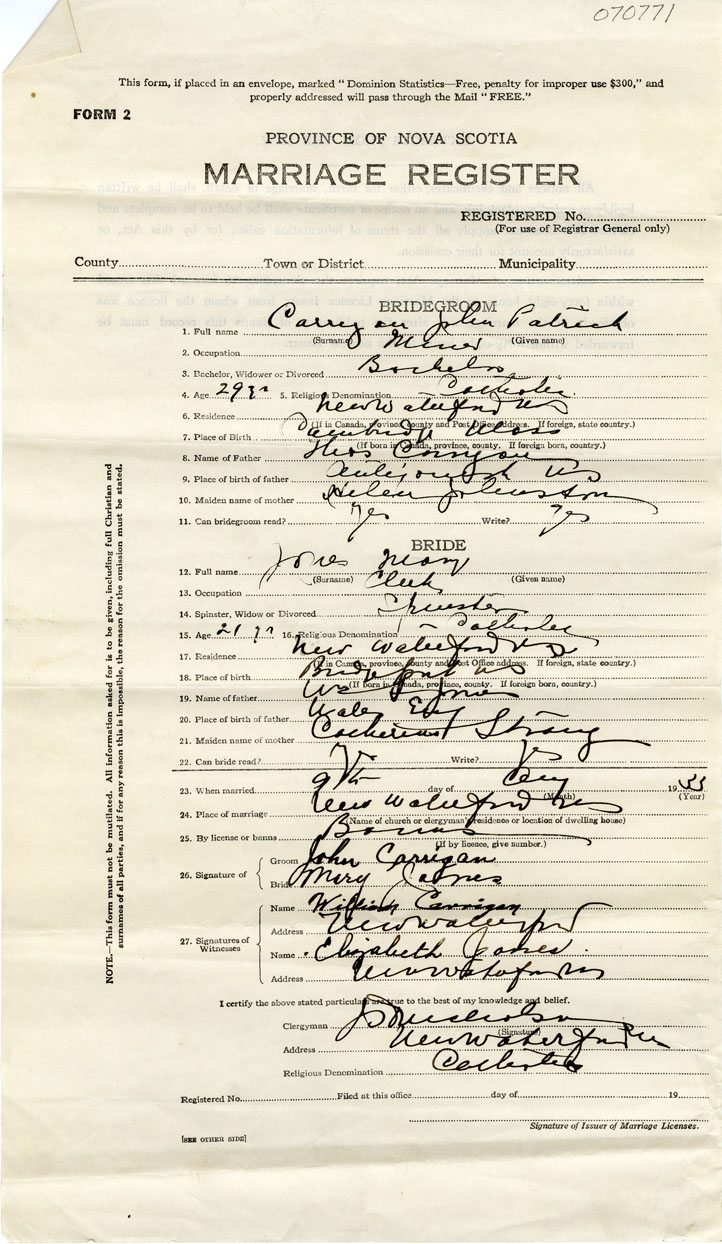 070771
This form, if placed in an envelope, marked "Dominion Statistics—Free, penalty for improper use $300," and
properly addressed will pass through the Mail "FREE."
FORM 2
PROVINCE OF NOVA SCOTIA
MARRIAGE REGISTER
REGISTERED No.
(For use of Registrar General only)
County Town or District Municipality
BRIDEGROOM
1. Full name John Patrick
(Surname) (Given name)
2. Occupation Miner
3. Bachelor, Widower or Divorced Bachelor
4. Age 29 yrs 5. Religious Denomination Catholic
6. Residence New Waterford NS
(If in Canada, province, county and Post Office address. If foreign, state country.)
7. Place of Birth Mass
(If born in Canada, province, county. If foreign born, country.)
8. Name of Father Thos
9. Place of birth of father Antigonish NS
10. Maiden name of mother Helen Johnston
11. Can bridegroom read? Yes Write? Yes
BRIDE
12. Full name Jones Mary
(Surname) (Given name)
13. Occupation Clerk
14. Spinster, Widow or Divorced Spinster
15. Age 21 yrs 16. Religious Denomination Catholic
17. Residence New Waterford NS
(If in Canada, province, county and Post Office address. If foreign, state country.)
18. Place of birth NS
(If born in Canada, province, county. If foreign born, country.)
19. Name of father Wm Jones
20. Place of birth of father Wales Eng
21. Maiden name of mother Catherine Strong
22. Can bride read? Yes Write? Yes
23. When married 9th day of 1933
(Month) (Year)
24. Place of marriage New Waterford NS
(Name of church or clergyman's residence or location of dwelling house)
25. By license or banns Banns
(If by licence, give number.)
26. Signature of Groom John Carrigan
Bride Mary Jones
27. Signatures of Witnesses
Name William Carrigan
Address New Waterford
Name Elizabeth Jones
Address New Waterford NS
I certify the above stated particulars are true to the best of my knowledge and belief.
Clergyman
(Signature)
Address New Waterford
Religious Denomination Catholic
Registered No. Filed at this office day of 19
Signature of Issuer of Marriage Licenses.
[SEE OTHER SIDE]
NOTE.—This form must not be mutilated. All information asked for is to be given, including full Christian and
surnames of all parties, and if for any reason this is impossible, the reason for the omission must be stated.